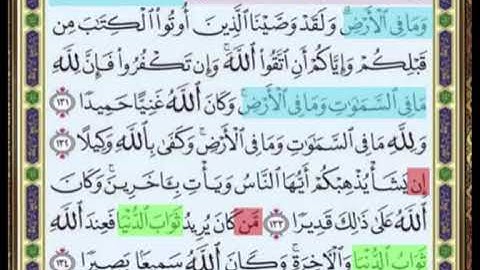 وَمَا فِي ٱلۡأَرۡضِۗ وَلَقَدۡ وَصَّيۡنَا ٱلَّذِينَ أُوتُواْ ٱلۡكِتَٰبَ مِن
قَبۡلِكُمۡ وَإِيَّاكُمۡ أَنِ ٱتَّقُواْ ٱللَّهَۚ وَإِن تَكۡفُرُواْ فَإِنَّ لِلَّهِ
مَا فِي ٱلسَّمَٰوَٰتِ وَمَا فِي ٱلۡأَرۡضِۚ وَكَانَ ٱللَّهُ غَنِيًّا حَمِيدٗا ١٣١
وَلِلَّهِ مَا فِي ٱلسَّمَٰوَٰتِ وَمَا فِي ٱلۡأَرۡضِۚ وَكَفَىٰ بِٱللَّهِ وَكِيلًا ١٣٢
إِن يَشَأۡ يُذۡهِبۡكُمۡ أَيُّهَا ٱلنَّاسُ وَيَأۡتِ بِـَٔاخَرِينَۚ وَكَانَ
ٱللَّهُ عَلَىٰ ذَٰلِكَ قَدِيرٗا ١٣٣ مَّن كَانَ يُرِيدُ ثَوَابَ ٱلدُّنۡيَا فَعِندَ ٱللَّهِ
ثَوَابُ ٱلدُّنۡيَا وَٱلۡأٓخِرَةِۚ وَكَانَ ٱللَّهُ سَمِيعَۢا بَصِيرٗا ١٣٤